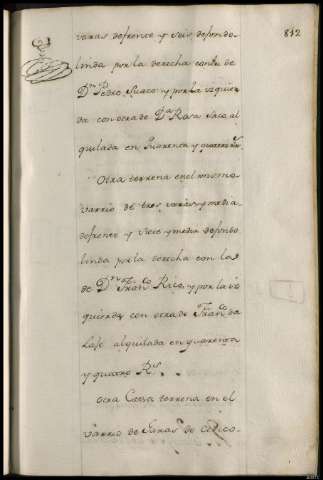 812
varas defrente y seis defondo
linda por la derecha con la de
Dn Pedro Suaco y por la izquier
da con otra de Da Rosa Rico al
quilada en quarenta y quatro Rs
Otra terrena en el mismo
varrio de tres varas y media
defrente y siete y media defondo
linda por la derecha con la
de Dn Franco Rico, y por la iz
quierda con otra de Franco da
alquilada en quarenta
y quatro Rs.
Otra Casa terrena en el
varrio de de cinco